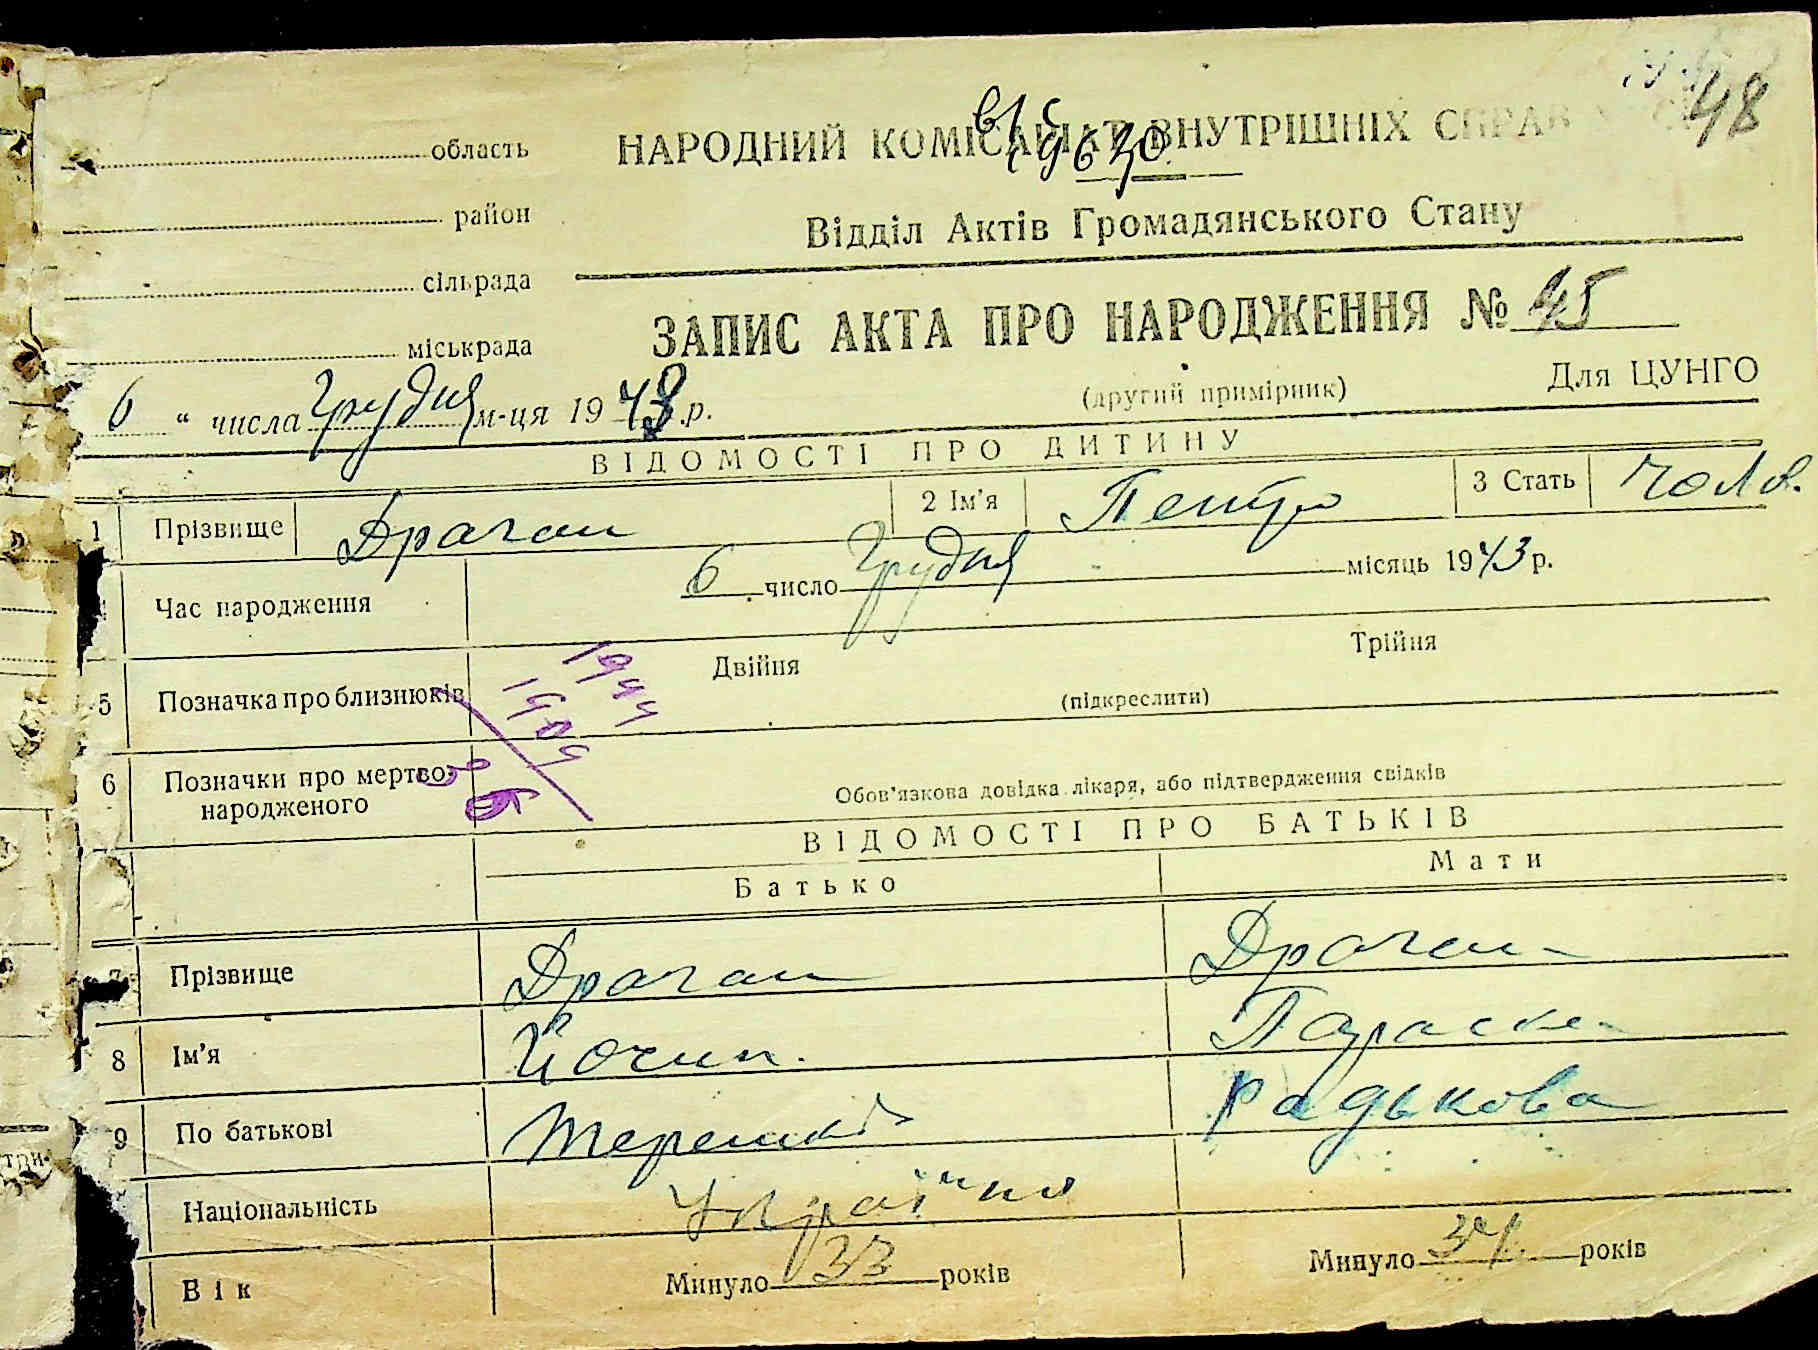 48
область НАРОДНИЙ КОМІСАРІАТ ВНУТРІШНІХ СПРАВ
район Відділ Актів Громадянського Стану
сільрада
ЗАПИС АКТА ПРО НАРОДЖЕННЯ № 45
міськрада
(другий примірник) Для ЦУНГО
6 “ числа Грудня м-ця 1943 р.
ВІДОМОСТІ ПРО ДИТИНУ
1 Прізвище Драган 2 Ім’я Петро 3 Стать чолов.
Час народження 6 число Грудня місяць 1943 р.
5 Позначка про близнюків Двійня Трійня
(підкреслити)
1944
1989
6 Позначки про мертво-
народженого
Обов’язкова довідка лікаря, або підтвердження свідків
ВІДОМОСТІ ПРО БАТЬКІВ
Батько Мати
7 Прізвище Драган Драган
8 Ім’я Параска
9 По батькові Радькова
Національність Україна
Вік Минуло 33 років Минуло 34 років